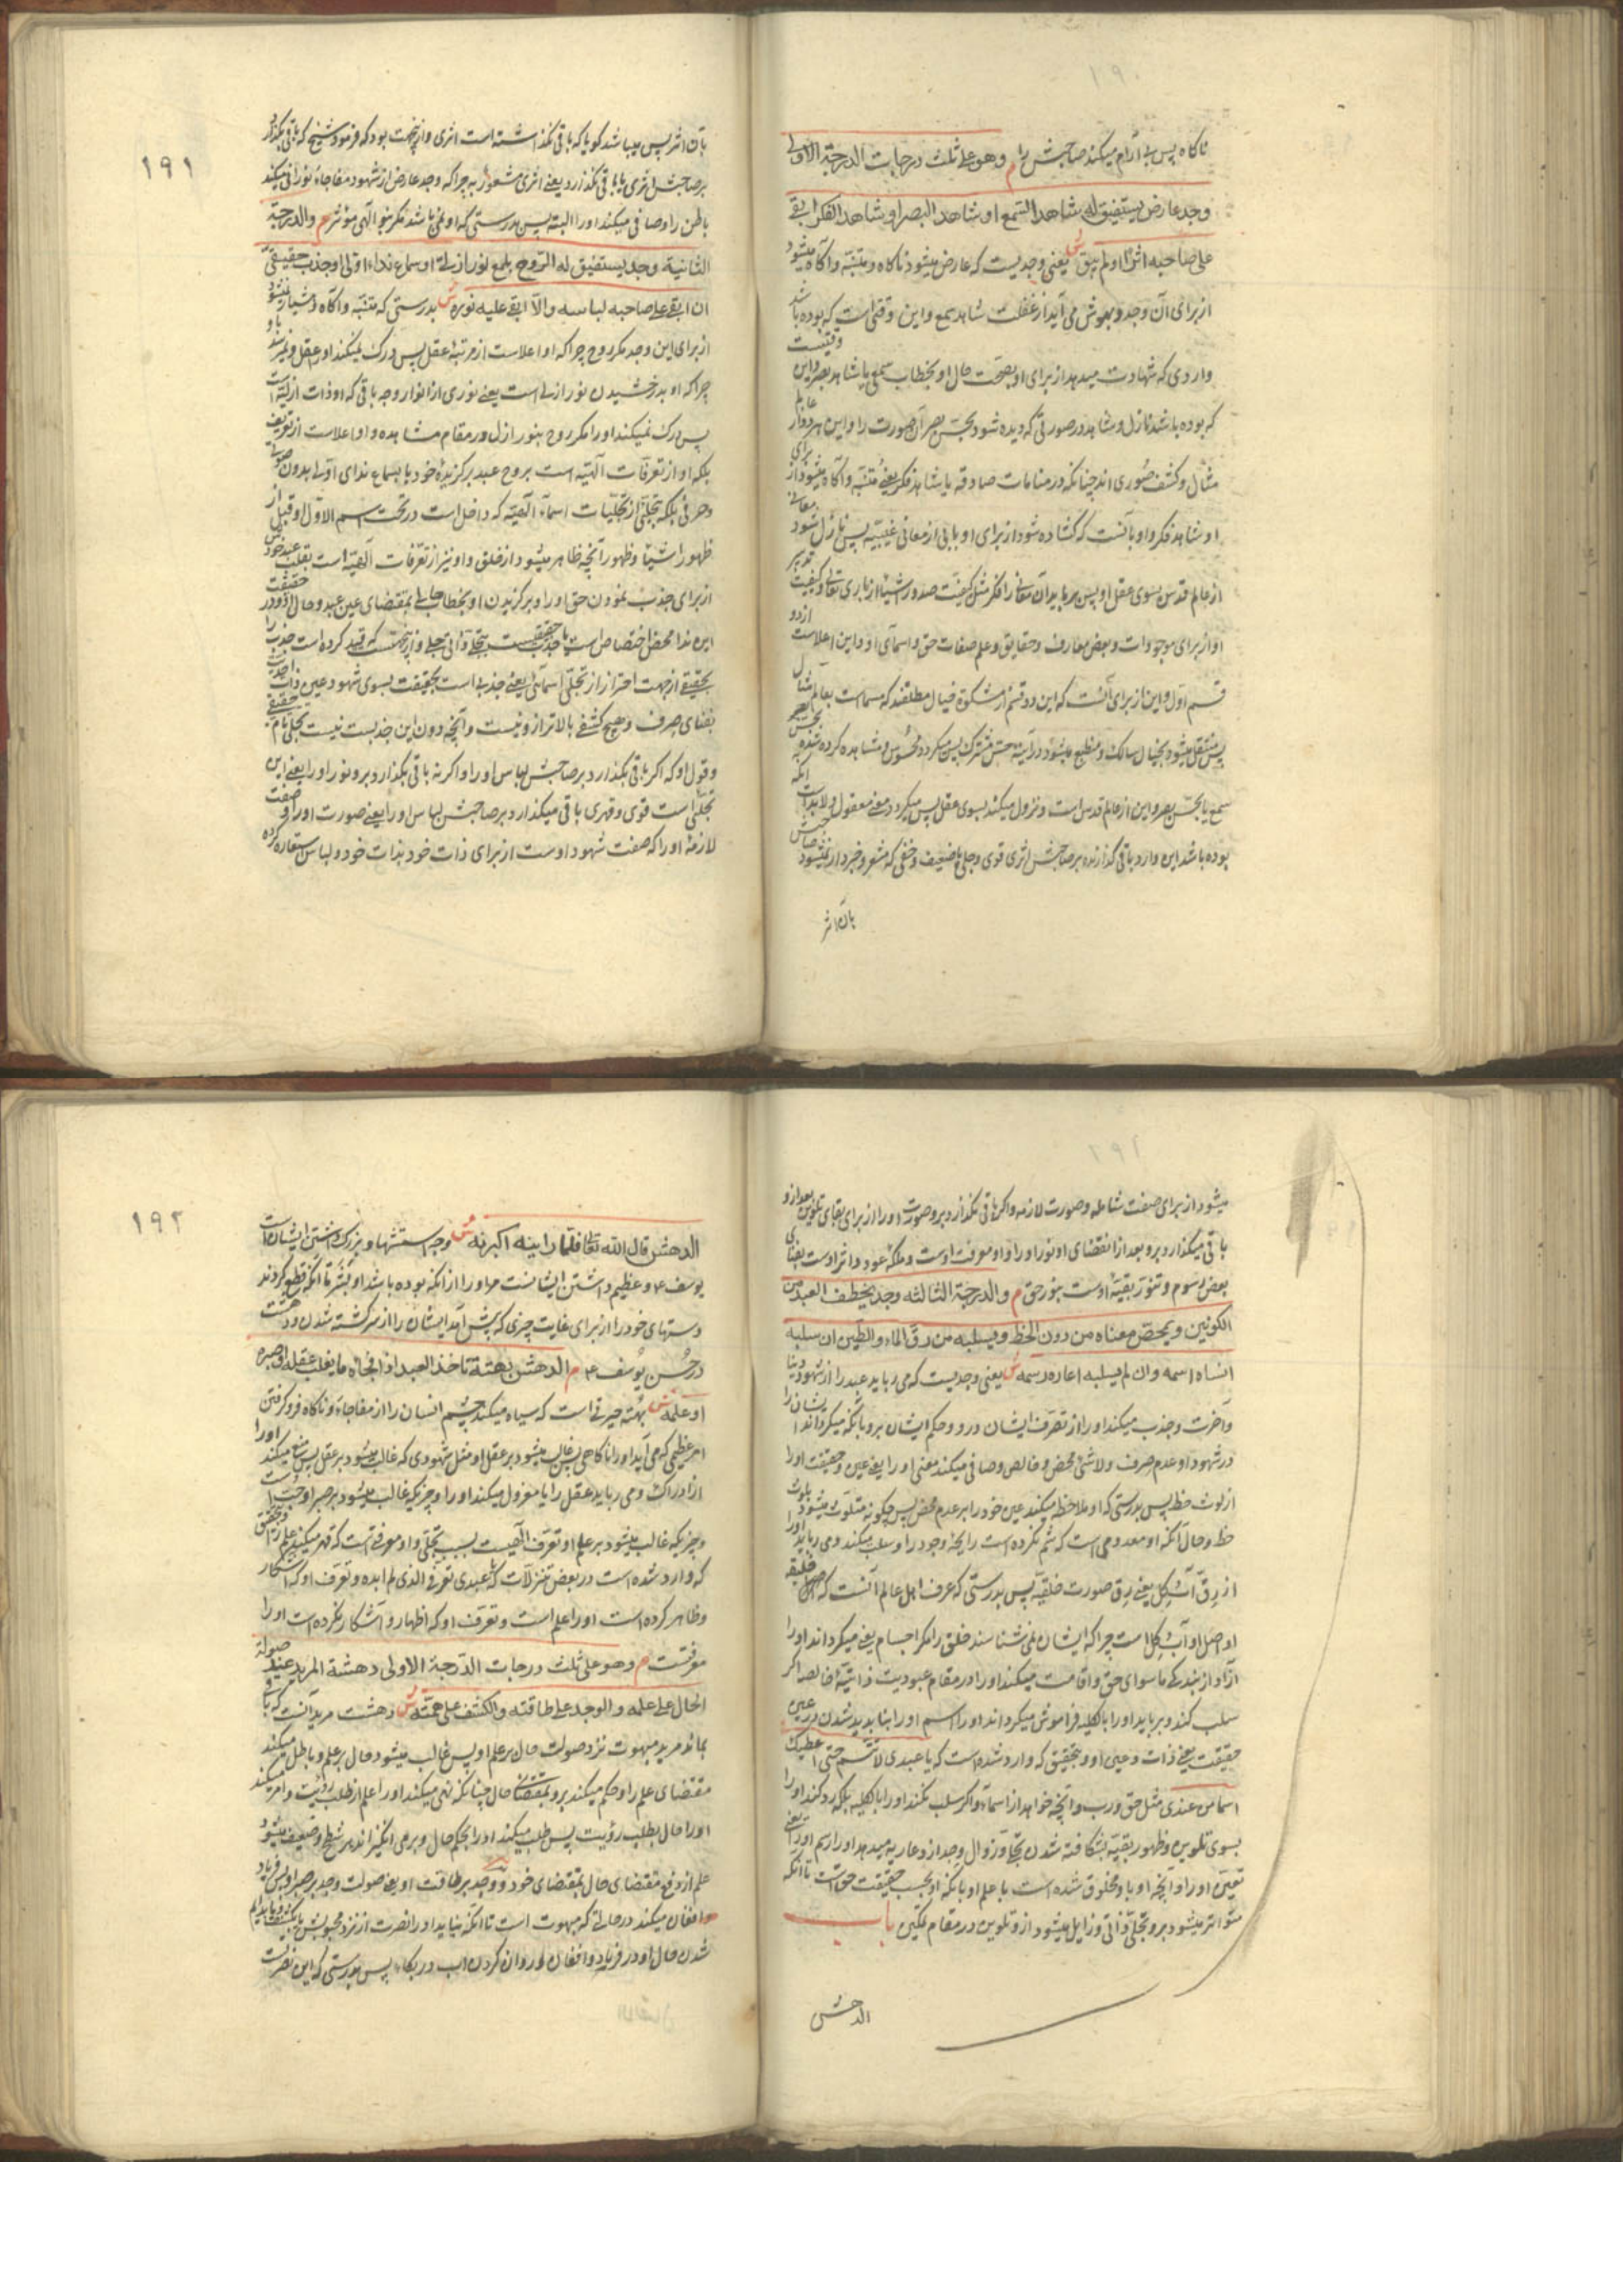 ناکاه پس بی آرام میکند صاحبش را م وهو علی ثلث درجات الدرجة الاولی
وجد عارض یستفیق له شاهد السمع او شاهد البصر او شاهد الفکر ابقی
علی صاحبه اثرا او لم یبق ش یعنی وجدیست که عارض میشود ناکاه و متنبه و آکاه میشود
از برای آن وجد و بهوش می آید از غفلت شاهد سمع و این وقتی است که بوده باشد
واردی که شهادت میدهد از برای او بصحت حال او بخطاب سمعی یا شاهد بصر و این وقتیست
که بوده باشد نازل و شاهد در صورتی که دیده شود بحس بصر آن صورت را و این هر دو از عالم
مثال و کشف صوری اند چنانکه در منامات صادقه یا شاهد فکر یعنی متنبه و آکاه میشود از برای
او شاهد فکر و او بآنست که کشاده شود از برای او بابی از معانی غیبیه پس نازل شود معانی
از عالم قدس بسوی عقل او پس در یابد آن معانی را فکر مثل کیفیت صدور اشیا از باری تعالی و کیفیت تدبیر
او از برای موجودات و بعض معارف و حقایق و علم صفات حق و اسمای او و این اعلاست از دو
قسم اول و این از برای آنست که این دو قسم از مشکوة خیال مطلقند که مسماست بعالم مثال
پس منتقل میشود بخیال سالک و منطبع میشود در آینه حس مشترک پس میکردد محسوس و مشاهده کرده شده بحس
سمع یا بحس بصر و این از عالم قدس است و نزول میکند بسوی عقل پس میکردد معنی معقول و لابد است آنکه
بوده باشد این وارد باقی کذارنده بر صاحبش اثری قوی و جلی یا ضعیف و خفی که مشعر و خبردار نمیشود صاحبش
بآن اثر
۱۹۱
بآن اثر پس میباشد کویا که باقی نکذاشته است اثری و از این جهت بود که فرمود شیخ که باقی بکذارد
بر صاحبش اثری یا باقی نکذارد یعنی اثری مشعور به چرا که وجد عارض از شهود مفاجاه نورانی میکند
باطن را و صافی میکند او را البته پس بدرستی که او نمی باشد مکر بنور الهی مؤثر م والدرجة
الثانیة وجد یستفیق له الروح بلمع نور ازلی او سماع نداء اولی او جذب حقیقی
ان ابقی علی صاحبه لباسه والا ابقی علیه نوره ش بدرستی که متنبه و آکاه و هشیار نمیشود
از برای این وجد مکر روح چرا که او اعلاست از مرتبه عقل پس درک نمیکند او را عقل و نمیرسد باو
چرا که او بدرخشیدن نور ازلی است یعنی نوری از انوار وجه باقی که او ذات ازلیه است
پس درک نمیکند او را مکر روح بنور ازل در مقام مشاهده و او اعلاست از تعریف
بلکه او از تعرفات الهیه است بروح عبد برکزیده خود یا بسماع ندای اولی بدون صوتی
و حرفی بلکه بتجلی از تجلیات اسماء الهیه که داخل است در تحت اسم الاول او قبل از
ظهور اشیا و ظهور آنچه ظاهر میشود از خلق و او نیز از تعرفات الهیه است بقلب عبد خود
از برای جذب نمودن حق او را و برکزیدن او بخطاب حالی بمقتضای عین عبد و حال او و در حقیقت
این ندا محض اختصاص است یا جذب حقیقیست بتجلی ذاتی جلی و از این جهتست که قید کرده است جذب را
بحقیقی از جهت احتراز از تجلی اسمائی یعنی جذبه است بحقیقت بسوی شهود عین ذات احدیت
بفنای صرف و هیچ کشفی بالاتر از و نیست و آنچه دون این جذبست نیست تجلی تام حقیقی
و قول او که اکر باقی بکذارد بر صاحبش لباس او را و اکر نه باقی بکذارد بر و نور او را یعنی این
تجلی است قوی و قهری باقی میکذارد بر صاحبش لباس او را یعنی صورت او را و صفت
لازمه او را که صفت شهود اوست از برای ذات خود بذات خود و لباس استعاره کرده
میشود از برای صفت شامله و صورت لازمه و اکر باقی نکذارد بر و صورت او را از برای بقای تلوین بعد از و
باقی میکذارد بر و بعد از انقضای او نور او را و او معرفت اوست و ملکه عود و اثر اوست بفنای
بعض رسوم و تنور بقیه اوست بنور حق م والدرجة الثالثه وجد یخطف العبد من
الکونین و یمحص معناه من دون الحظ و یسلبه من رق الماء والطین ان سلبه
انساه اسمه وان لم یسلبه اعاره رسمه ش یعنی وجدیست که می رباید عبد را از شهود دنیا
و آخرت و جذب میکند او را از تصرف ایشان در و و حکم ایشان بر و بآنکه میکرداند ایشان را
در شهود او عدم صرف و لا شئ محض و خالص و صافی میکند معنی او را یعنی عین و حقیقت او را
از لوث حظ پس بدرستی که او ملاحظه میکند عین خود را بر عدم محض پس چکونه متلوث میشود بلوث
حظ و حال آنکه او معدومی است که شم نکرده است رایحه وجود را و سلب میکند و می رباید او را
از رق آب و کل یعنی رق صورت خلقیه پس بدرستی که عرف اهل عالم آنست که اصل خلیقه
او اصل او آب و کل است چرا که ایشان نمی شناسند خلق را مکر اجسام یعنی میکرداند او را
آزاد از بندکی ما سوای حق و اقامت میکند او را در مقام عبودیت ذاتیه خالصه اکر
سلب کند و برباید او را بالکلیه فراموش میکرداند او را اسم او را بناپدید شدن در عین
حقیقت یعنی ذات و عین او و بتحقیق که وارد شده است که یا عبدی لا تتسم حتی اعطیک
اسما من عندی مثل حق و رب و آنچه خواهد از اسماء و اکر سلب نکند او را بالکلیه بلکه رد کند او را
بسوی تلوین و ظهور بقیه بشکافته شدن تجلی و زوال وجد از و عاریه میدهد او را رسم او را یعنی
تعین او را و آنچه او باو مخلوق شده است با علم او بآنکه او بحسب حقیقت حق است تا آنکه
متواتر میشود بر و تجلی ذاتی و زایل میشود از و تلوین در مقام تمکین باب
الدهش
۱۹۲
الدهش قال الله تعالی فلما راینه اکبرنه ش وجه استشهاد بزرک داشتن ایشان است
یوسف ع و عظیم داشتن ایشانست مر او را از آنکه بوده باشد او بشر تا آنکه قطع کردند
دستهای خود را از برای غایت چیزی که پیش آمد ایشان را از سرکشته شدن و دهشت
در حسن یوسف ع م الدهش بهتة تاخذ العبد اذا فجاه ما یغلب عقله او صبره
او علمه ش بهته حیرتی است که سیاه میکند چشم انسان را از مفاجاه و ناکاه فرو کرفتن
امر عظیمی که می آید او را ناکاهی پس غالب میشود بر عقل او مثل شهودی که غالب میشود بر عقل پس منع میکند او را
از ادراک و می رباید عقل را یا معزول میکند او را و چیزیکه غالب میشود بر صبر او حب است
و چیزیکه غالب میشود بر علم او تعرف الهیست بسبب تجلی و او معرفتی است که قهر میکند علم را و بتحقیق
که وارد شده است در بعض تنزلات که یا عبدی تعرفی الذی لم ابده و تعرف او که آشکار
و ظاهر کرده است او را علم است و تعرف او که اظهار و آشکار نکرده است او را
معرفتست م وهو علی ثلث درجات الدرجة الاولی دهشة المرید عند صولة
الحال علی علمه والوجد علی طاقته والکشف علی همته ش دهشت مرید آنست که باقی
بماند مرید مبهوت نزد صولت حال بر علم او پس غالب میشود حال بر علم و باطل میکند
مقتضای علم را و حکم میکند بر و بمقتضای حال چنانکه نهی میکند او را علم از طلب رؤیت و امر میکند
او را حال بطلب رؤیت پس طلب میکند او را بحکم حال و برمی انکیزاند بر شطح و ضعیف میشود
علم از دفع مقتضای حال بمقتضای خود و وجد بر طاقت او یعنی صولت وجد بر صبر او پس فریاد
و افغان میکند در حالتی که مبهوت است تا آنکه بیاید او را نصرت از نزد محبوبش بکشف
شدن حال او در فریاد و افغان و روان کردن آب در بکاء پس بدرستی که این نصرت